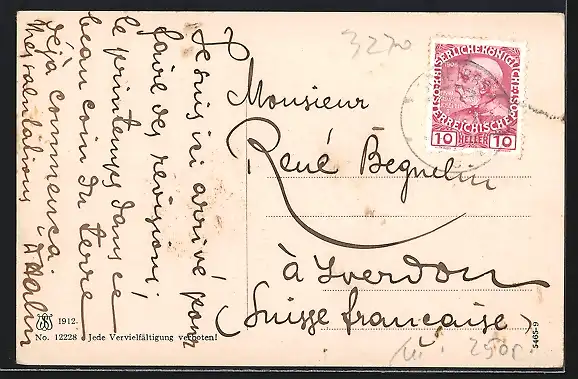 Je suis ici arrivé pour
faire des revisions;
le printemps dans ce
beau coin du terre
déjà commencé.
Mes salutations
3270
Monsieur
René Béguelin
à Yverdon
(Suisse française)
KAISERLICHE KÖNIGLICHE ÖSTERREICHISCHE POST
10 HELLER 10
1912.
No. 12228 Jede Vervielfältigung verboten!
5465-9